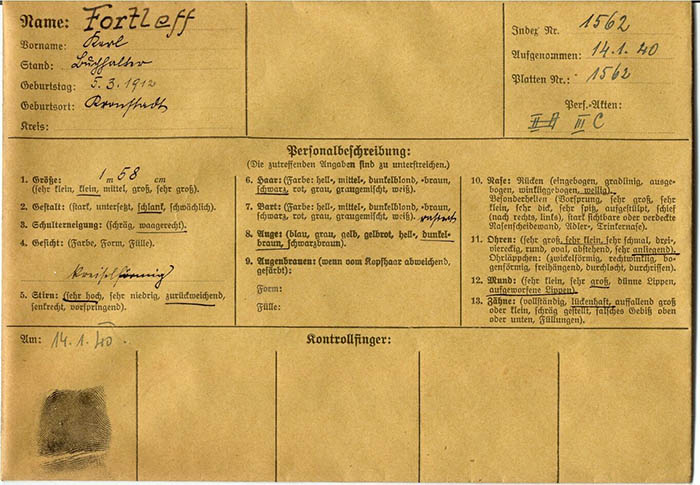 Name: Fortleff
Vorname: Karl
Stand: Buchhalter
Geburtstag: 5. 3. 1912
Geburtsort: Kronstadt
Kreis:
Index Nr. 1562
Aufgenommen: 14. 1. 40
Platten Nr.: 1562
Pers.-Akten:
II A III C
Personalbeschreibung:
(Die zutreffenden Angaben sind zu unterstreichen.)
1. Größe: 1 m 58 cm
(sehr klein, klein, mittel, groß, sehr groß).
2. Gestalt: (stark, untersetzt, schlank, schwächlich).
3. Schulterneigung: (schräg, waagerecht).
4. Gesicht: (Farbe, Form, Fülle).
5. Stirn: (sehr hoch, sehr niedrig, zurückweichend,
senkrecht, vorspringend).
6. Haar: (Farbe: hell-, mittel-, dunkelblond, -braun,
schwarz, rot, grau, graugemischt, weiß).
7. Bart: (Farbe: hell-, mittel-, dunkelblond, -braun,
schwarz, rot, grau, graugemischt, weiß). rasiert
8. Auge: (blau, grau, gelb, gelbrot, hell-, dunkel-
braun, schwarzbraun).
9. Augenbrauen: (wenn vom Kopfhaar abweichend,
gefärbt):
Form:
Fülle:
10. Nase: Rücken (eingebogen, gradlinig, ausge-
bogen, winkliggebogen, wellig).
Besonderheiten (Vorsprung, sehr groß, sehr
klein, sehr dick, sehr spitz, aufgestülpt, schief
(nach rechts, links), stark sichtbare oder verdeckte
Nasenscheidewand, Adler-, Trinkernase).
11. Ohren: (sehr groß, sehr klein, sehr schmal, drei-
viereckig, rund, oval, abstehend, sehr anliegend).
Ohrläppchen: (zwickelförmig, rechtwinklig, bo-
genförmig, freihängend, durchlocht, durchrissen).
12. Mund: (sehr klein, sehr groß, dünne Lippen,
aufgeworfene Lippen).
13. Zähne: (vollständig, lückenhaft, auffallend groß
oder klein, schräg gestellt, falsches Gebiß oben
oder unten, Füllungen).
Am: 14. 1. 40.
Kontrollfinger: